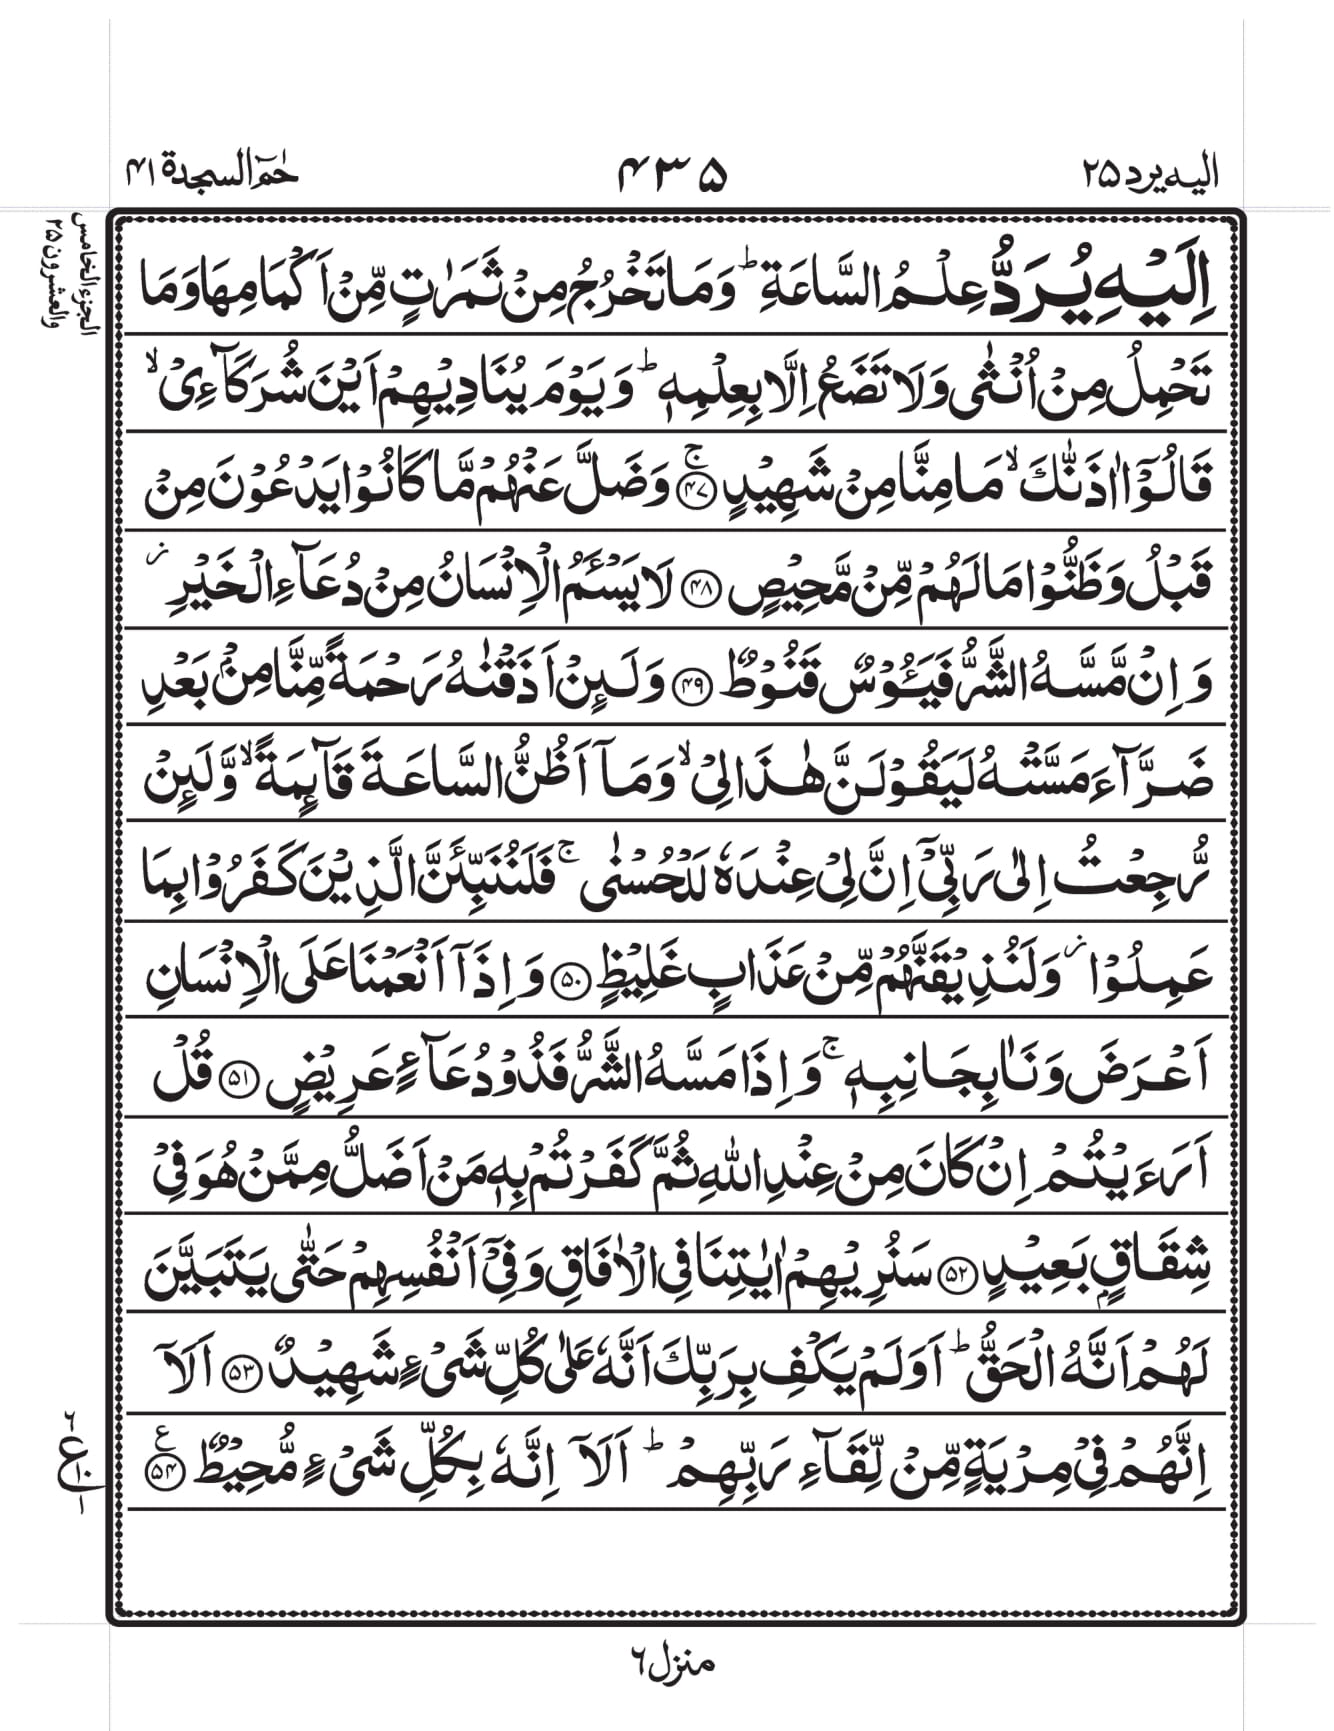 الیه یرد ۲۵
۴۳۵
حٰمٓ السجدة ۴۱
الجزء الخامس
والعشرون ۲۵
اِلَیْهِ یُرَدُّ عِلْمُ السَّاعَةِ ؕ وَمَا تَخْرُجُ مِنْ ثَمَرٰتٍ مِّنْ اَكْمَامِهَا وَمَا
تَحْمِلُ مِنْ اُنْثٰی وَلَا تَضَعُ اِلَّا بِعِلْمِهٖ ؕ وَیَوْمَ یُنَادِیْهِمْ اَیْنَ شُرَكَآءِیْ ۙ
قَالُوْۤا اٰذَنّٰكَ ۙ مَا مِنَّا مِنْ شَهِیْدٍ ۚ ﴿۴۷﴾ وَضَلَّ عَنْهُمْ مَّا كَانُوْا یَدْعُوْنَ مِنْ
قَبْلُ وَظَنُّوْا مَا لَهُمْ مِّنْ مَّحِیْصٍ ﴿۴۸﴾ لَا یَسْـَٔمُ الْاِنْسَانُ مِنْ دُعَآءِ الْخَیْرِ ز
وَاِنْ مَّسَّهُ الشَّرُّ فَیَـُٔوْسٌ قَنُوْطٌ ﴿۴۹﴾ وَلَىِٕنْ اَذَقْنٰهُ رَحْمَةً مِّنَّا مِنْۢ بَعْدِ
ضَرَّآءَ مَسَّتْهُ لَیَقُوْلَنَّ هٰذَا لِیْ ۙ وَمَاۤ اَظُنُّ السَّاعَةَ قَآىِٕمَةً ۙ وَّلَىِٕنْ
رُّجِعْتُ اِلٰی رَبِّیْۤ اِنَّ لِیْ عِنْدَهٗ لَلْحُسْنٰی ۚ فَلَنُنَبِّئَنَّ الَّذِیْنَ كَفَرُوْا بِمَا
عَمِلُوْا ز وَلَنُذِیْقَنَّهُمْ مِّنْ عَذَابٍ غَلِیْظٍ ﴿۵۰﴾ وَاِذَاۤ اَنْعَمْنَا عَلَی الْاِنْسَانِ
اَعْرَضَ وَنَاٰ بِجَانِبِهٖ ۚ وَاِذَا مَسَّهُ الشَّرُّ فَذُوْ دُعَآءٍ عَرِیْضٍ ﴿۵۱﴾ قُلْ
اَرَءَیْتُمْ اِنْ كَانَ مِنْ عِنْدِ اللهِ ثُمَّ كَفَرْتُمْ بِهٖ مَنْ اَضَلُّ مِمَّنْ هُوَ فِیْ
شِقَاقٍۭ بَعِیْدٍ ﴿۵۲﴾ سَنُرِیْهِمْ اٰیٰتِنَا فِی الْاٰفَاقِ وَفِیْۤ اَنْفُسِهِمْ حَتّٰی یَتَبَیَّنَ
لَهُمْ اَنَّهُ الْحَقُّ ؕ اَوَلَمْ یَكْفِ بِرَبِّكَ اَنَّهٗ عَلٰی كُلِّ شَیْءٍ شَهِیْدٌ ﴿۵۳﴾ اَلَاۤ
اِنَّهُمْ فِیْ مِرْیَةٍ مِّنْ لِّقَآءِ رَبِّهِمْ ؕ اَلَاۤ اِنَّهٗ بِكُلِّ شَیْءٍ مُّحِیْطٌ ﴿۵۴﴾ ع
منزل ۶